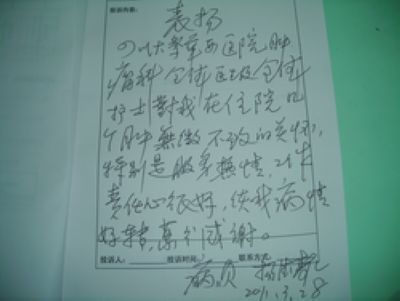 投诉内容:
表扬
四川大学华西医院肿
瘤科全体医生及全体
护士對我在住院几
个月中無微不致的关怀,
特别是服务热情,工作
责任心很好,使我病情
好轉,萬分感谢。
投诉人: 投诉时间: 联系方式:
病员
2011.3.28